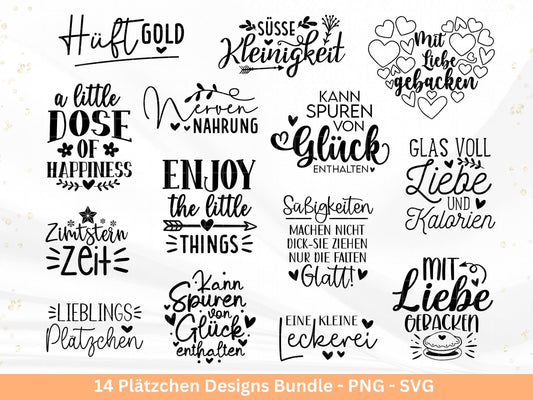 Hüft GOLD
SÜSSE
Kleinigkeit
Mit
Liebe
gebacken
a little
DOSE
OF
HAPPINESS
Nerven
NAHRUNG
KANN
SPUREN
VON
Glück
ENTHALTEN
GLAS VOLL
Liebe
UND
Kalorien
ENJOY
the little
THINGS
Süßigkeiten
MACHEN NICHT
DICK-SIE ZIEHEN
NUR DIE FALTEN
Glatt!
Zimtstern
Zeit
MIT
Liebe
GEBACKEN
LIEBLINGS
Plätzchen
Kann
Spuren
von
Glück
enthalten
EINE KLEINE
Leckerei
14 Plätzchen Designs Bundle - PNG - SVG